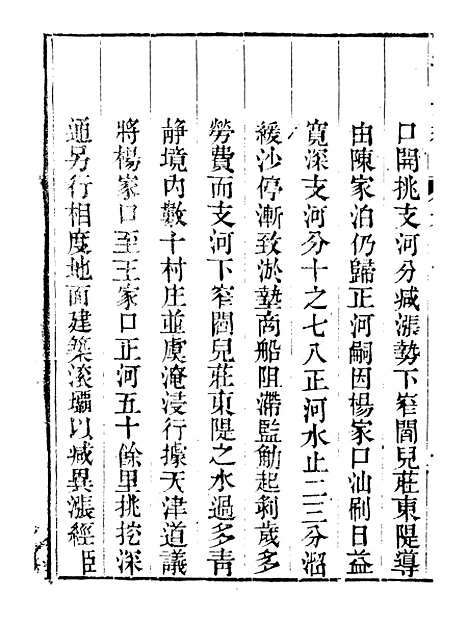 口開挑支河分減漲勢下窄閻兒莊東隄導
由陳家泊仍歸正河嗣因楊家口汕刷日益
寬深支河分十之七八正河水止二三分溜
緩沙停漸致淤墊商船阻滯監觔起剥歲多
勞費而支河下窄閻兒莊東隄之水過多青
静境内數十村庄並虞淹浸行據天津道議
將楊家口至王家口正河五十餘里挑挖深
通另行相度地面建築滚壩以減異漲經臣